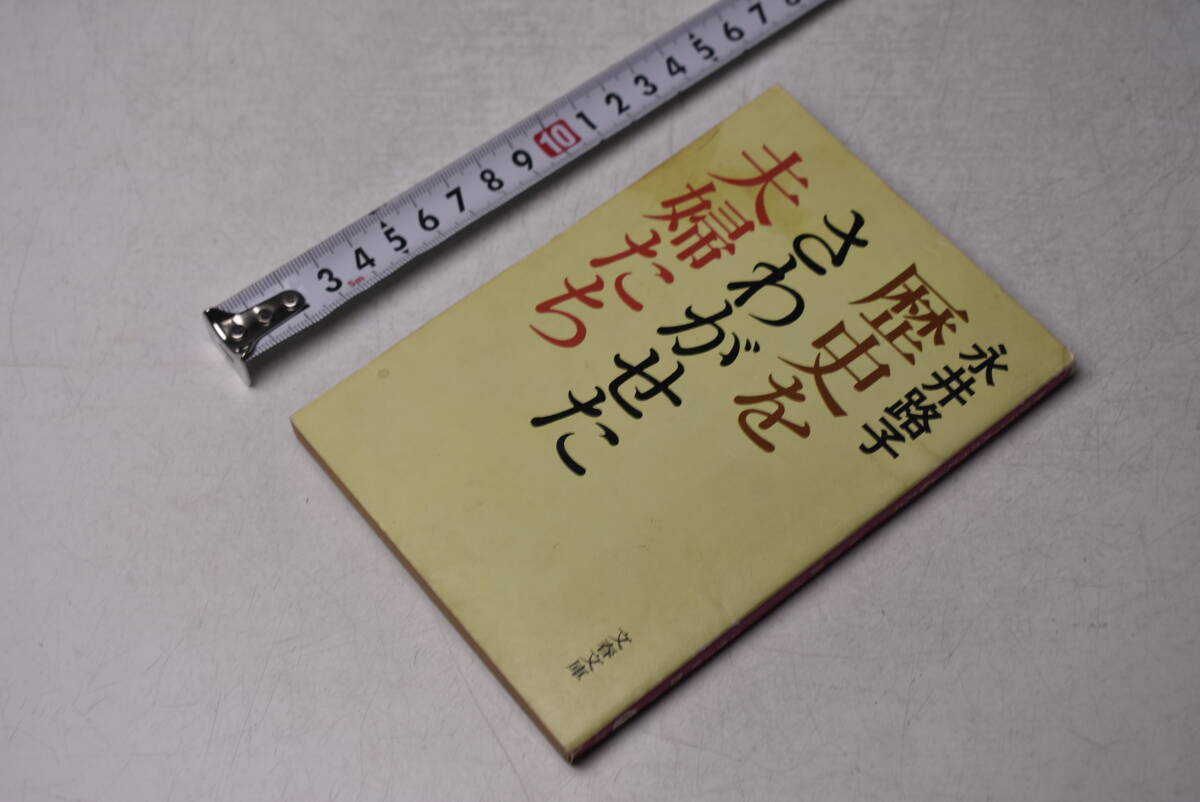 永井路子
歴史を
さわがせた
夫婦たち
文春文庫
3 4 5 6 7 8 9 10 1 2 3 4 5 6 7 8
5m